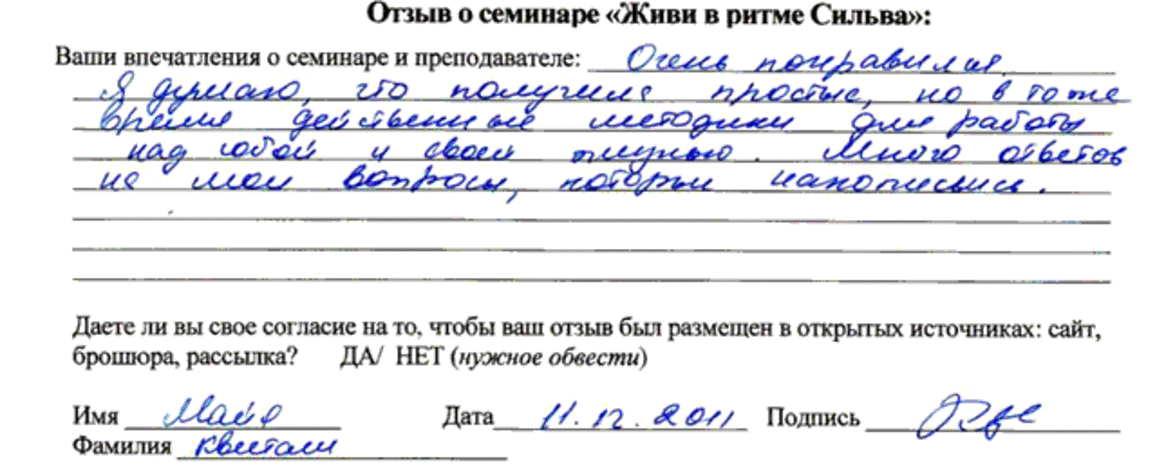 Отзыв о семинаре «Живи в ритме Сильва»:
Ваши впечатления о семинаре и преподавателе: Очень понравился.
Я думаю, что получила простые, но в то же
время действенные методики для работы
над собой и своей жизнью. Много ответов
на мои вопросы, которые накопились.
Даете ли вы свое согласие на то, чтобы ваш отзыв был размещен в открытых источниках: сайт,
брошюра, рассылка? ДА/ НЕТ (нужное обвести)
Имя Майя Дата 11.12.2011 Подпись
Фамилия